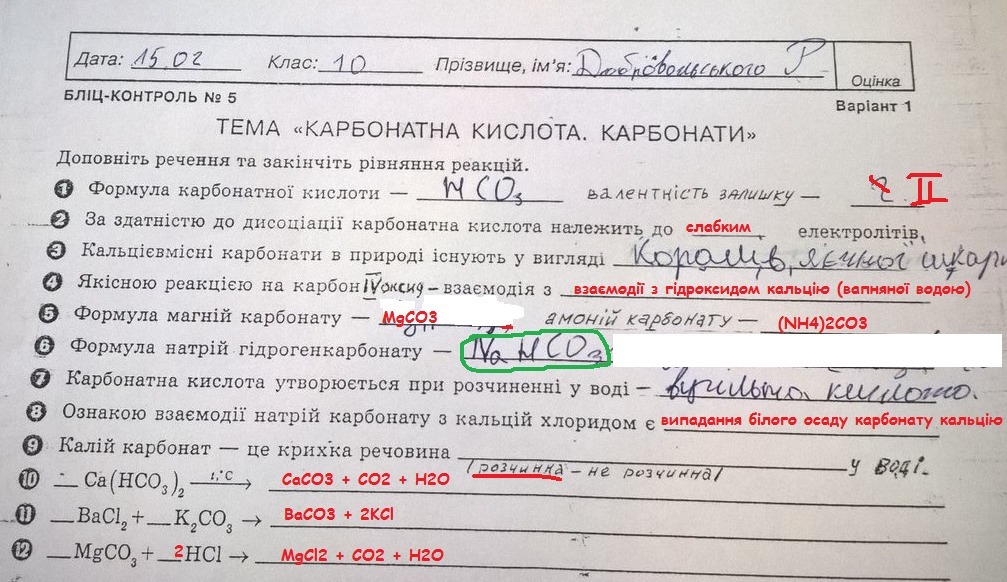 Дата: 15.02 Клас: 10 Прізвище, ім'я: Добровольського Р Оцінка
БЛІЦ-КОНТРОЛЬ № 5 Варіант 1
ТЕМА «КАРБОНАТНА КИСЛОТА. КАРБОНАТИ»
Доповніть речення та закінчіть рівняння реакцій.
1 Формула карбонатної кислоти — HCO₃ валентність залишку — 2 II
2 За здатністю до дисоціації карбонатна кислота належить до слабким електролітів.
3 Кальцієвмісні карбонати в природі існують у вигляді Коралів, яєчної шкари
4 Якісною реакцією на карбон IV оксид – взаємодія з взаємодії з гідроксидом кальцію (вапняної водою)
5 Формула магній карбонату — MgCO3 амоній карбонату — (NH4)2CO3
6 Формула натрій гідрогенкарбонату — NaHCO₃
7 Карбонатна кислота утворюється при розчиненні у воді – вугільна кислота.
8 Ознакою взаємодії натрій карбонату з кальцій хлоридом є випадання білого осаду карбонату кальцію
9 Калій карбонат — це крихка речовина /розчинна – не розчинна/ у воді.
10 __ Ca(HCO₃)₂ t,°C → CaCO3 + CO2 + H2O
11 __BaCl₂ + __K₂CO₃ → BaCO3 + 2KCl
12 __MgCO₃ + 2HCl → MgCl2 + CO2 + H2O